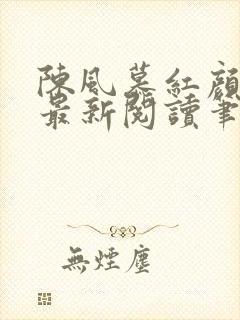 陳風慕紅顏
最新閱讀筆
無煙塵